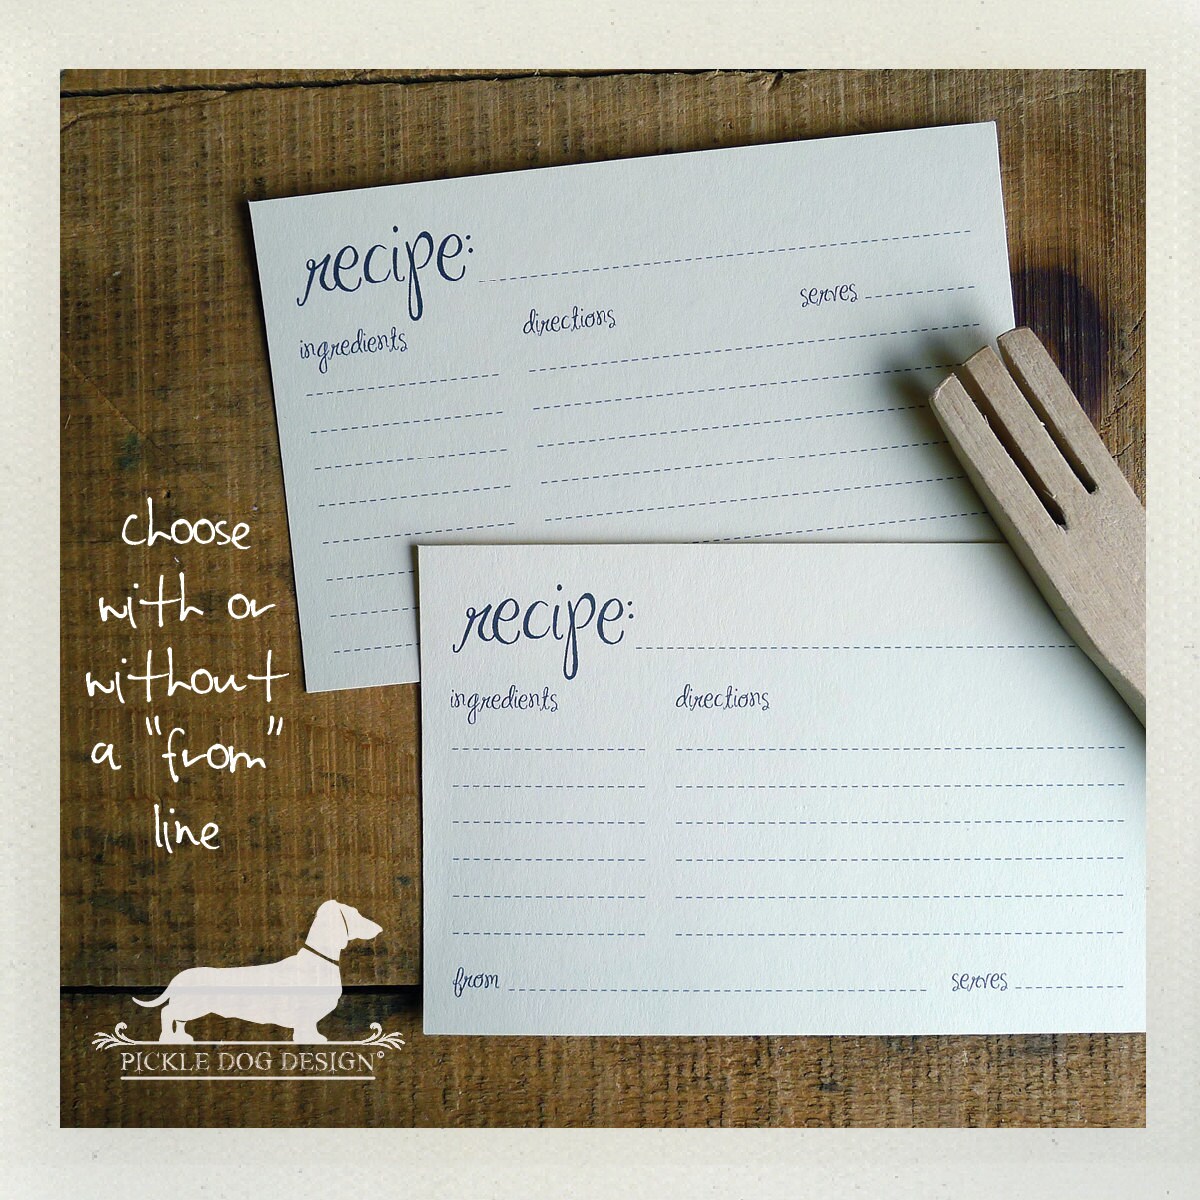 recipe:
serves
directions
ingredients
choose
with or
without
a "from"
line
recipe:
ingredients
directions
from
serves
PICKLE DOG DESIGN©